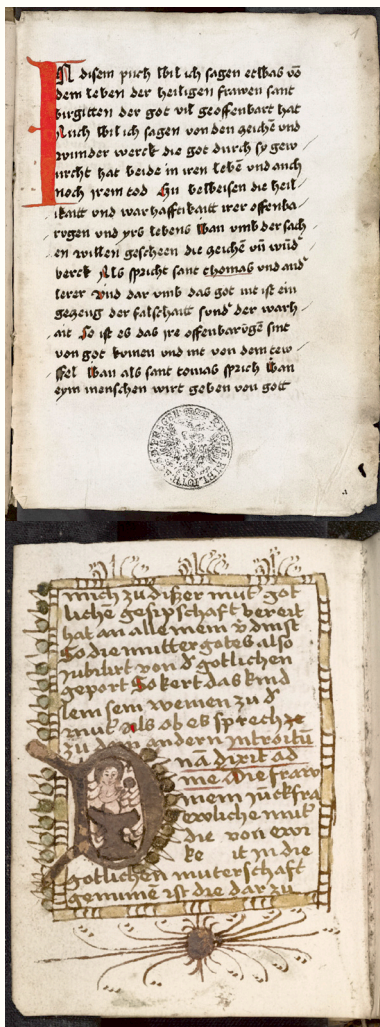 1
In disem puch wil ich sagen etwas vō
dem leben der heiligen frawen sant
birgitten der got vil geoffenbart hat
Auch wil ich sagen von den zeichē vnd
wunder werck die got durch sy gew
urcht hat beide in iren lebē vnd auch
noch irem tod Zu beweisen die heil
ikait vnd warhafftikaitt irer offenba
rūgen vnd yrs lebens wan vmb der sach
en willen gescheen die zeichē vñ wūd
berck Als spricht sant thomas vnd and
lerer Vnd dar vmb das got nit ist ein
gezeug der falschait sund der warh
ait So ist es das ire offenbarūgē sint
von got kumen vnd nit von dem tew
ffel wan als sant tomas sprich wan
eym menschen wirt geben von gott
mich zu dißer mut got
lichē gesipschaft bereit
hat an alle mein v̄dinst
So die mutter gotes also
iubilirt von d gotlichen
geport So kert das kind
lem sein weinen zu d
mut als ob es sprech ze
zu dem andern Introitū
nā dixit ad
me Die fraw
mein iūckfra
wliche mut
die von ewi
ke it in die
gotlichen muterschaft
genumē ist die dar zu